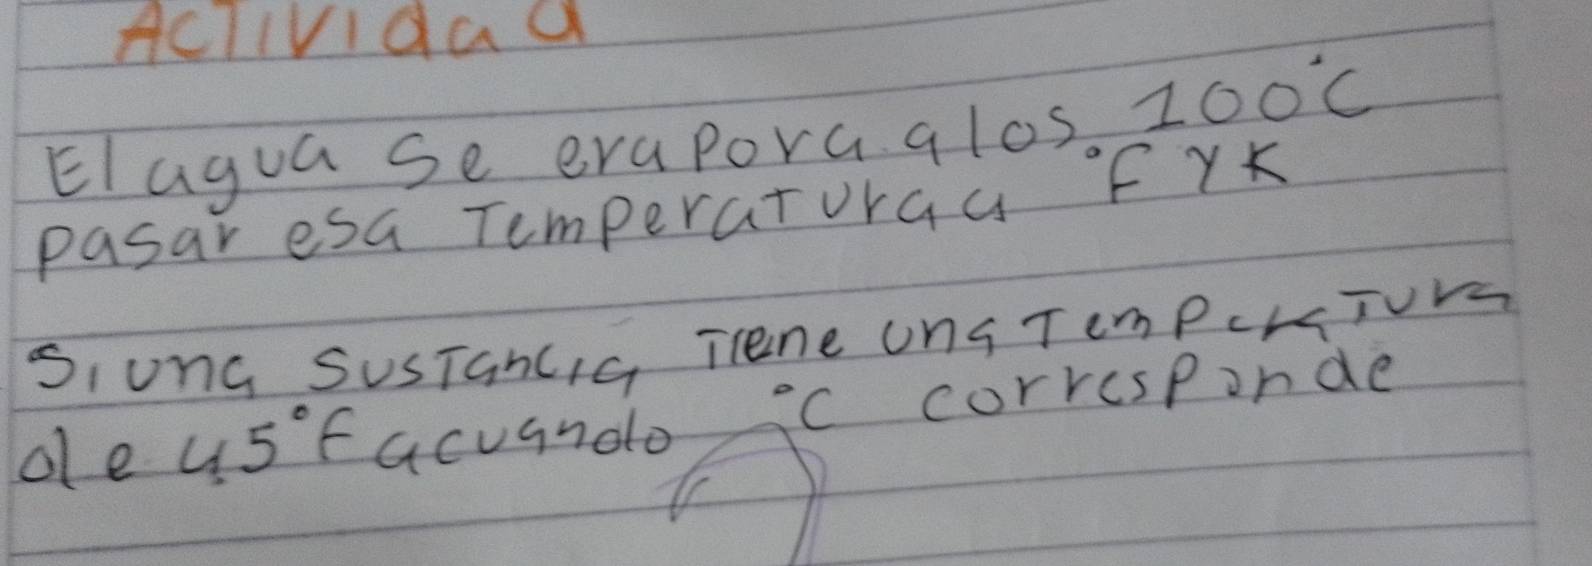 Actividad
El agua se evapora a los 100°C
pasar esa Temperatura a °F y K
Si una sustancia Tiene una Temperatura
de 45°F a cuando °C corresponde